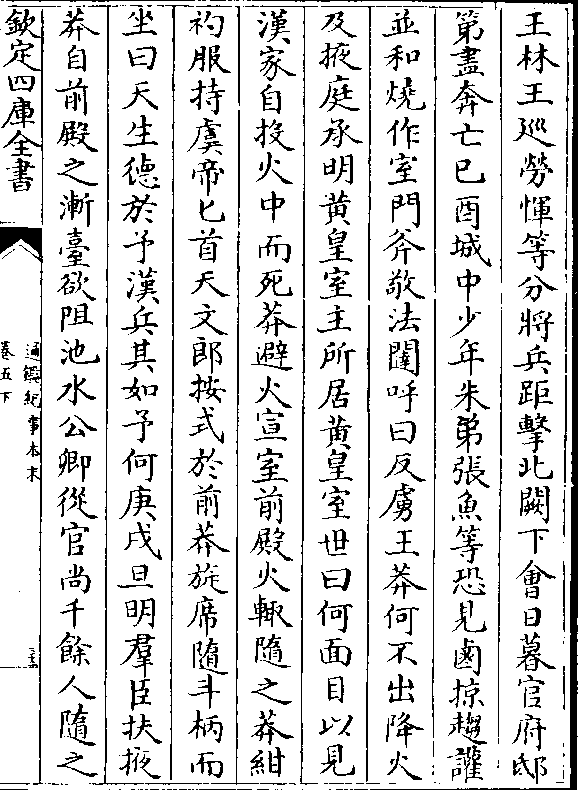 王林王巡勞惲等分將兵距擊北闕下會日暮官府邸
第盡奔亡己酉城中少年朱弟張魚等恐見鹵掠趨讙
並和燒作室門斧敬法闥呼曰反虜王莽何不出降火
及掖庭承明黄皇室主所居黄皇室世曰何面目以見
漢家自投火中而死莽避火宣室前殿火輒隨之莽紺
袀服持虞帝匕首天文郎按式於前莽旋席隨斗柄而
坐曰天生德於予漢兵其如予何庚戌旦明羣臣扶掖
莽自前殿之漸臺欲阻池水公卿從官尚千餘人隨之
欽定四庫全書
通鑑紀事本末
卷五下